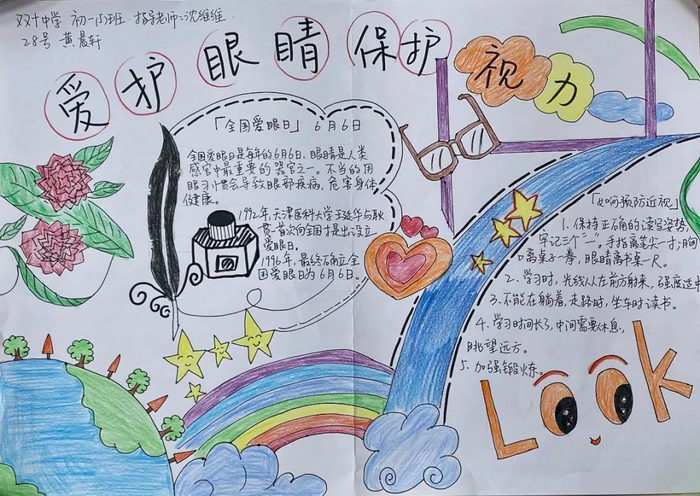 双十中学 初一15班 指导老师:沈维维
28号 黄晨轩
爱护眼睛保护视力
「全国爱眼日」 6月6日
全国爱眼日是每年的6月6日,眼睛是人类
感官中最重要的器官之一。不当的用
眼习惯会导致眼部疾病,危害身体
健康。
1992年,天津医科大学王延华与耿
贯一首次向全国提出设立
爱眼日。
1996年,最终确立全
国爱眼日为6月6日。
「如何预防近视」
1. 保持正确的读写姿势,
牢记三个“一”。手指离笔尖一寸;胸口
离桌子一拳,眼睛离书桌一尺。
2. 学习时,光线从左前方射来,强度适中
3. 不能在躺着,走路时,坐车时读书。
4. 学习时间长了,中间需要休息,
眺望远方。
5. 加强锻炼。
Look